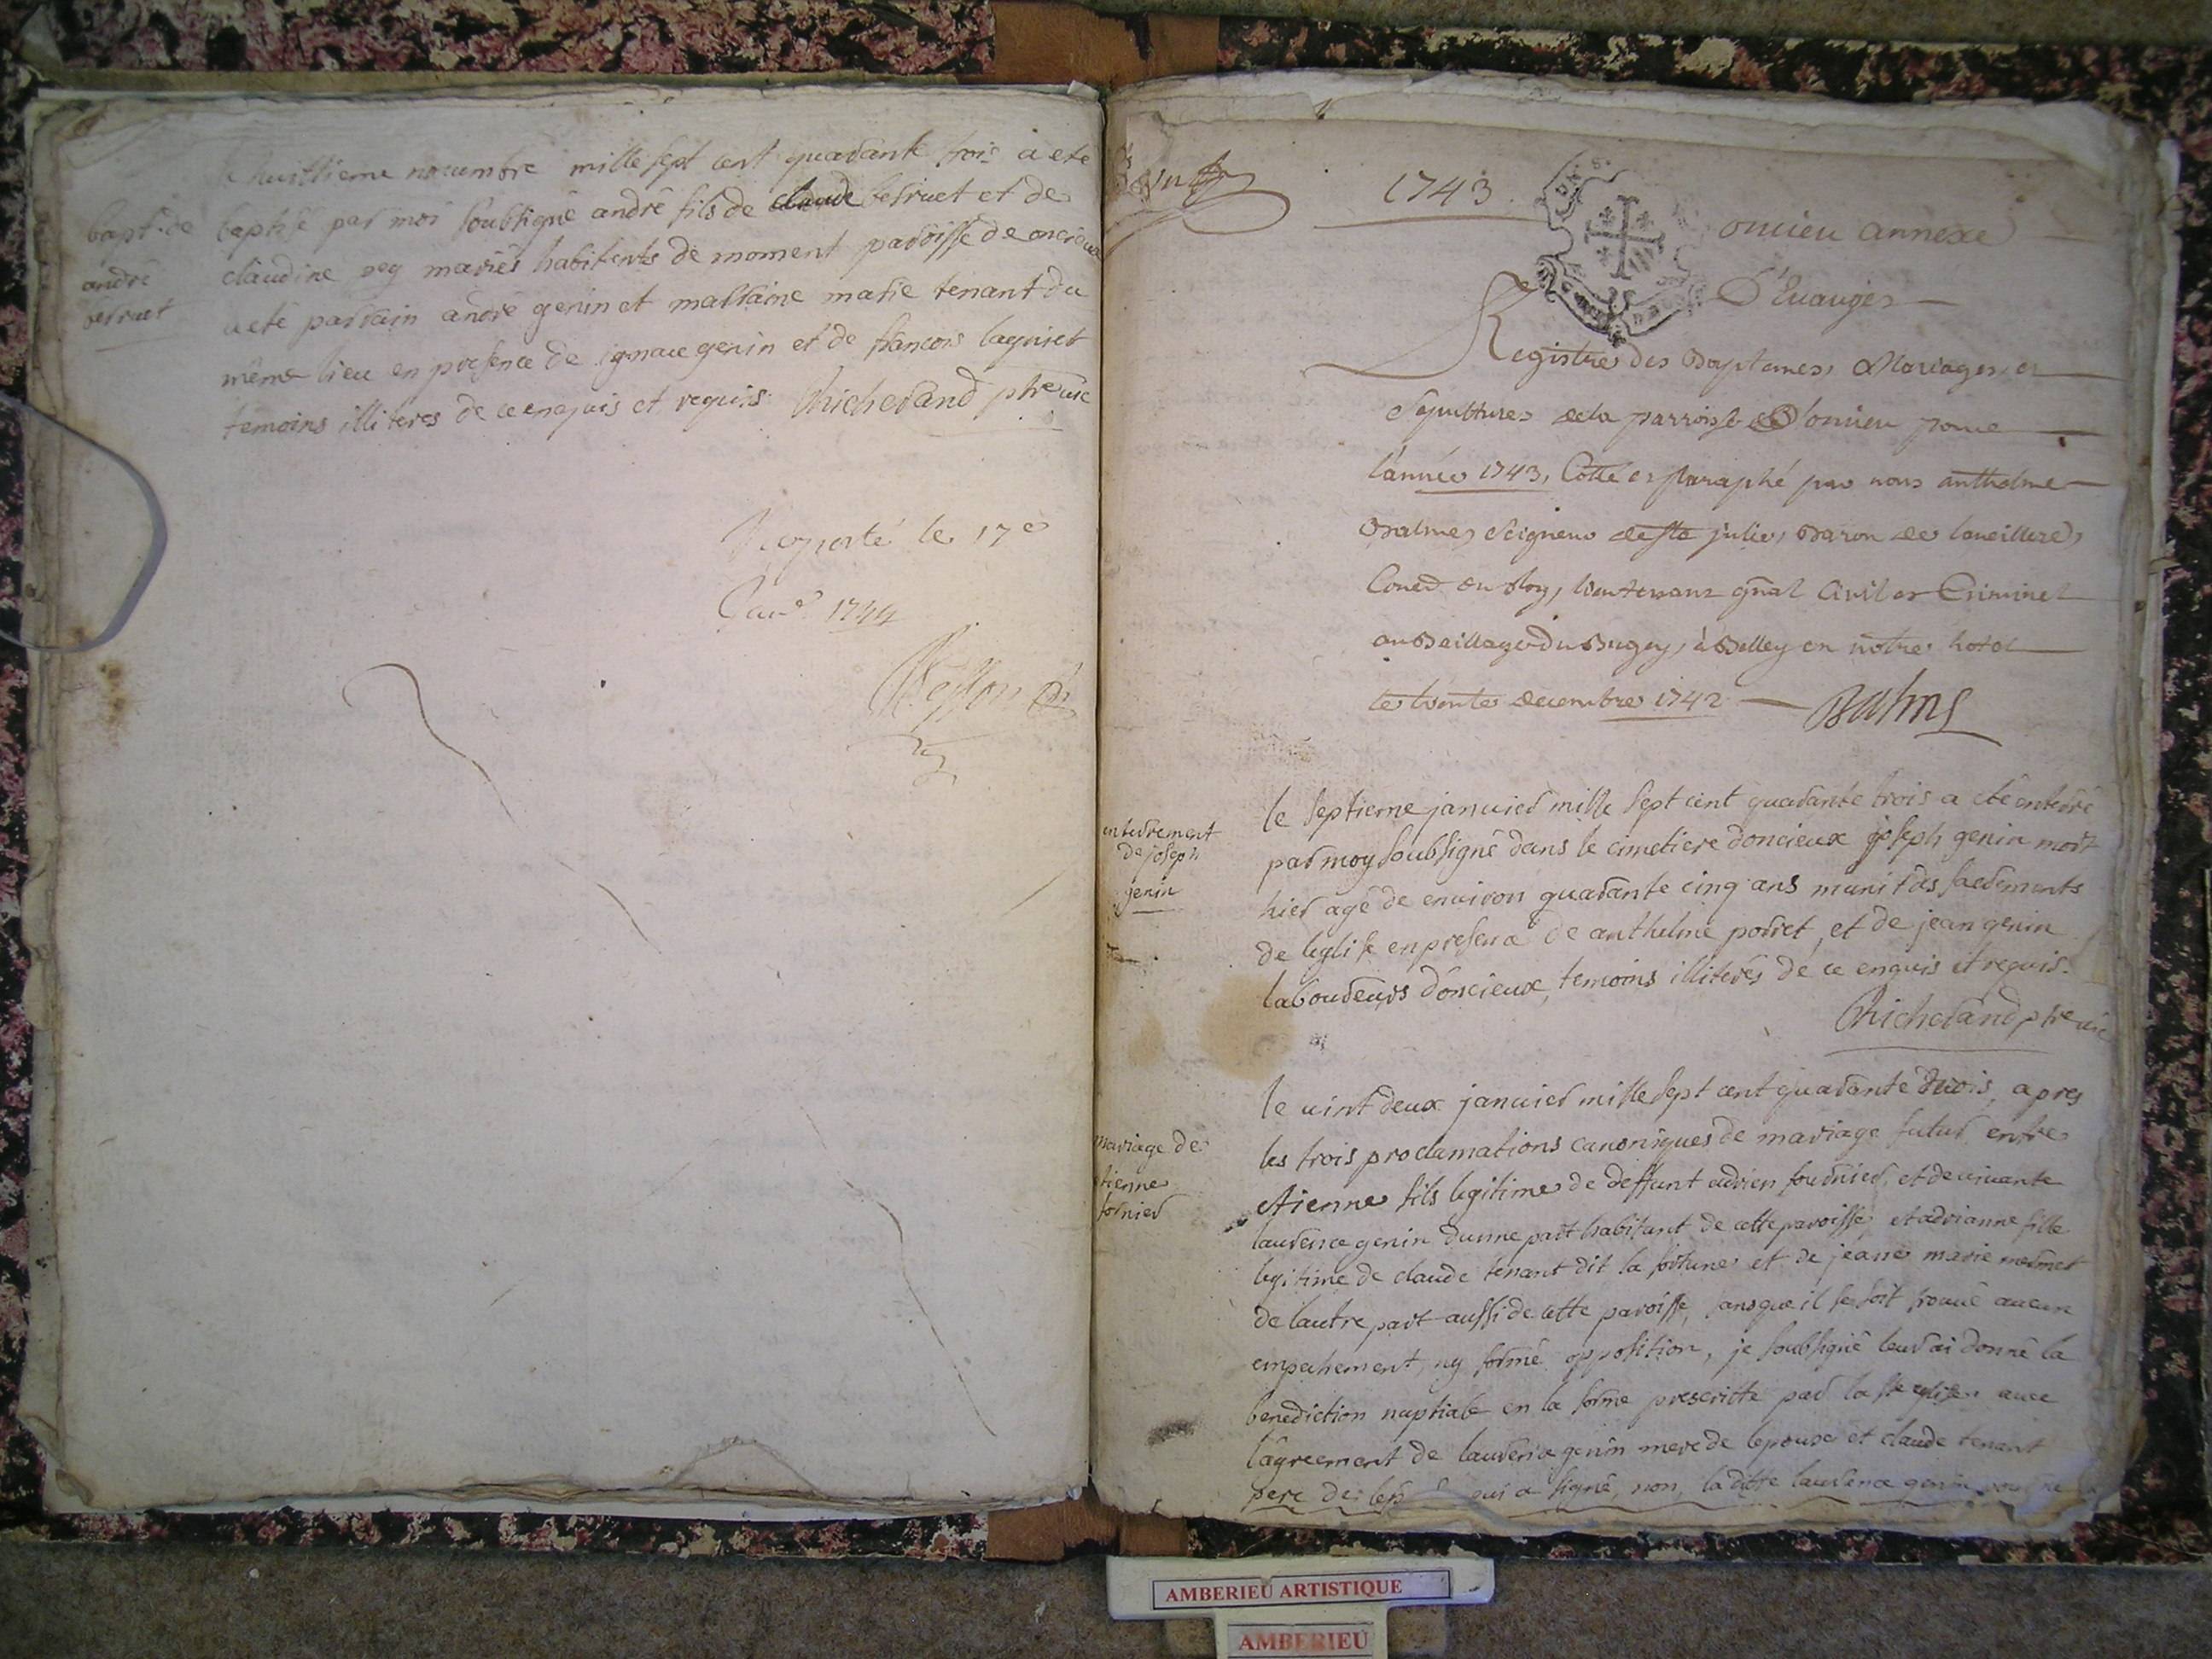 le huittieme novembre mille sept cent quarante trois a eté
bapt. de
andré
betruet
baptisé par moi soubsigné andré fils de claude betruet et de
claudine rey mariés habitents de moment paroisse de oncieux
a eté parrain andré genin et marraine marie tenant du
même lieu en presence de ignace genin et de francois laguiret
temoins illiteres de ce enquis et requis. Richerand ptre vic
Raporté le 17e
Janvr 1744
1743.
oncieu annexe
D'Euauges
Registre des Baptemes, Mariages et
Sepultures de la parroisse D'oncieu pour
l'année 1743, Cotté et Paraphé par nous anthelme
Balme, Seigneur de ste julie, Baron de
Coner du Roy, lieutenant gñal Civil et Criminel
au Baillage du Bugey, à Belley en notre hotel
le trente decembre 1742 Balme
enterrement
de joseph
genin
le septieme janvier mille sept cent quarante trois a eté enterré
par moy soubsigné dans le cimetiere doncieux joseph genin mort
hier agé de environ quarante cinq ans muni des sacrements
de leglise en presence de anthelme porret, et de jean genin
laboureurs doncieux, temoins illiterés de ce enquis et requis.
Richerand ptre vic
mariage de
etienne
fornier
le vint deux janvier mille sept cent quarante trois, apres
les trois proclamations canoniques de mariage futur entre
etienne fils legitime de deffunt adrien fournier, et de vivante
laurence genin dunne part habitant de cette paroisse, et adrianne fille
legitime de claude tenant dit la fortune et de jeane marie mermet
de lautre part aussi de cette paroisse, sans que il se soit trouvé aucun
empechement, ny formé opposition, je soubsigné leur ai donné la
benediction nuptiale en la forme prescritte par la ste eglise avec
lâgreement de laurence genin mere de lepoux et claude tenant
pere de qui a signé, non, la ditte laurence genin
AMBERIEU ARTISTIQUE
AMBERIEU